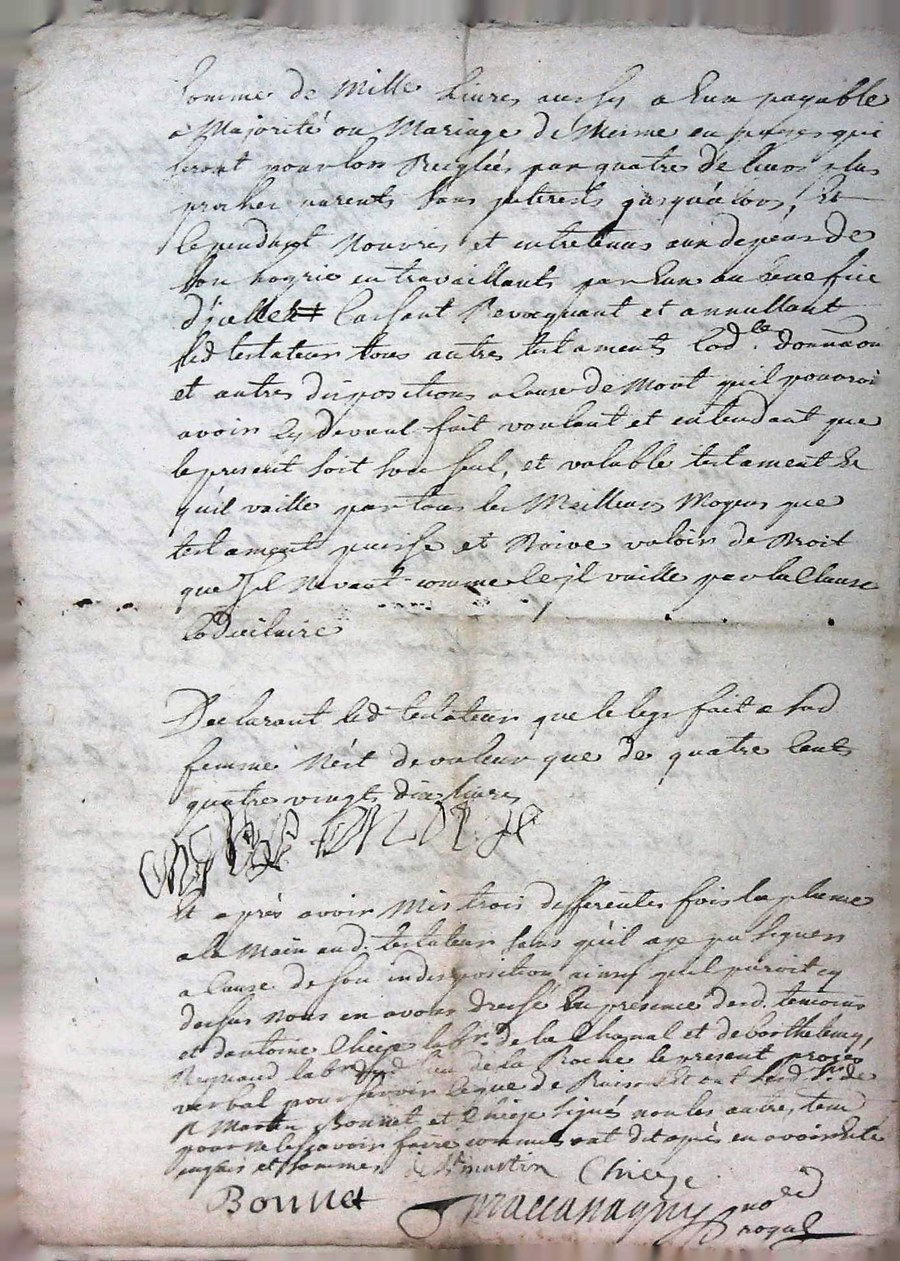 somme de Mille livres aussy a Eux payable
a Majorité ou Mariage de Mesme en payes qui
seront pour lors Reiglées par quatres de leurs plus
proches parents sans jnterests jusqu'alors, Et
Cependant Nourris et entretenus aux depens de
Son hoyrie en travaillants par Eux au benefice
d'jcelle Cassant Revocquant et annullant
led testateur tous autres testaments Cod.les donnaōn
et autres dispositions a Cause de Mort qu'il pourroit
avoir Cy devant fait voulant et entendant que
le present soit son seul, et valable testament Et
qu'il vaille par tous les Meilleurs Moyens que
testament puisse et Doive valoir de Droit
que s'jl Ne vaut comme Ce jl vaille par la Clause
Codicilaire
Declarant led testateur que le legs fait a sad
femme N'est de valeur que de quatre Cents
quatre vingts dix livres
Et après avoir Mis trois differentes fois la plume
a la Main aud. testateur sans qu'il aye pu signer
a Cause de son indisposition ainsy qu'il paroit cy
dessus Nous en avons dressé En presence desd. temoins
et d'antoine Chieze labr. de la Chanal et de barthelemy
Reynaud labr. du lieu de la Roche le present proces
verbal pour servir Ce que de Raison Et ont lesd Srs de
St Martin Bonnet et Chieze signés non les autres tem
pour ne le sçavoir faire comme ont dit après en avoir Esté
enquis et sommes de St martin Chieze
Bonnet no.re